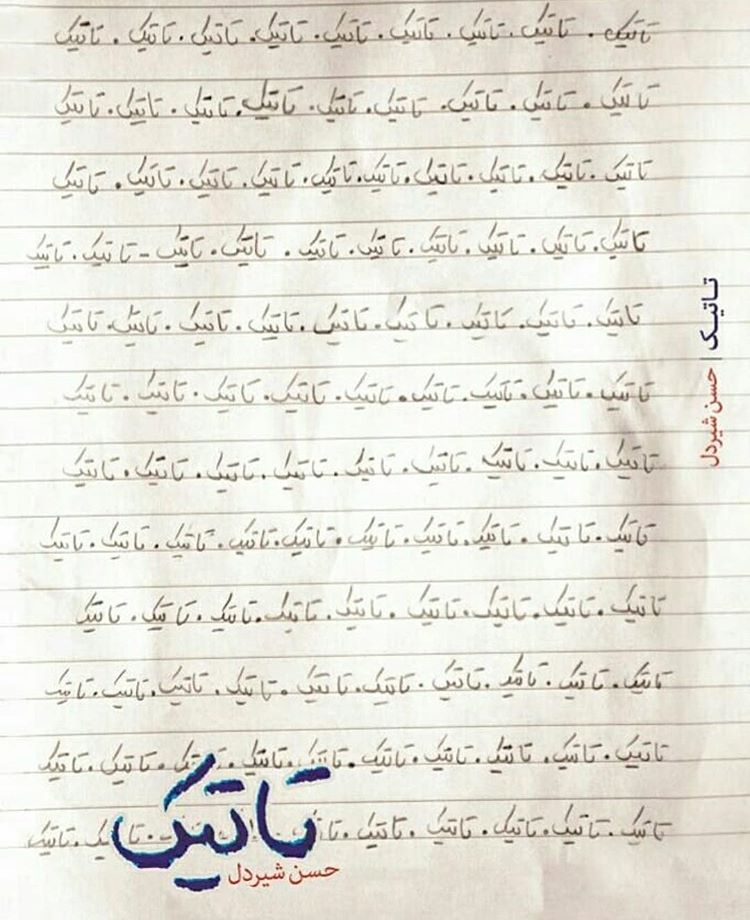 تاتیک . تاتیک . تاتیک . تاتیک . تاتیک . تاتیک . تاتیک . تاتیک . تاتیک
تاتیک . تاتیک . تاتیک . تاتیک . تاتیک . تاتیک . تاتیک . تاتیک . تاتیک
تاتیک . تاتیک . تاتیک . تاتیک . تاتیک . تاتیک . تاتیک . تاتیک . تاتیک . تاتیک
تاتیک . تاتیک . تاتیک . تاتیک . تاتیک . تاتیک . تاتیک . تاتیک - تاتیک . تاتیک
تاتیک . تاتیک . تاتیک . تاتیک . تاتیک . تاتیک . تاتیک . تاتیک . تاتیک
تاتیک . تاتیک . تاتیک . تاتیک . تاتیک . تاتیک . تاتیک . تاتیک . تاتیک
تاتیک . تاتیک . تاتیک . تاتیک . تاتیک . تاتیک . تاتیک . تاتیک . تاتیک
تاتیک . تاتیک . تاتیک . تاتیک . تاتیک . تاتیک . تاتیک . تاتیک . تاتیک . تاتیک
تاتیک . تاتیک . تاتیک . تاتیک . تاتیک . تاتیک . تاتیک . تاتیک . تاتیک
تاتیک . تاتیک . تاتیک . تاتیک . تاتیک . تاتیک . تاتیک . تاتیک . تاتیک . تاتیک
تاتیک . تاتیک . تاتیک . تاتیک . تاتیک . تاتیک . تاتیک . تاتیک . تاتیک . تاتیک
تاتیک . تاتیک . تاتیک . تاتیک . تاتیک . تاتیک
تاتیک
حسن شیردل
تاتیک | حسن شیردل